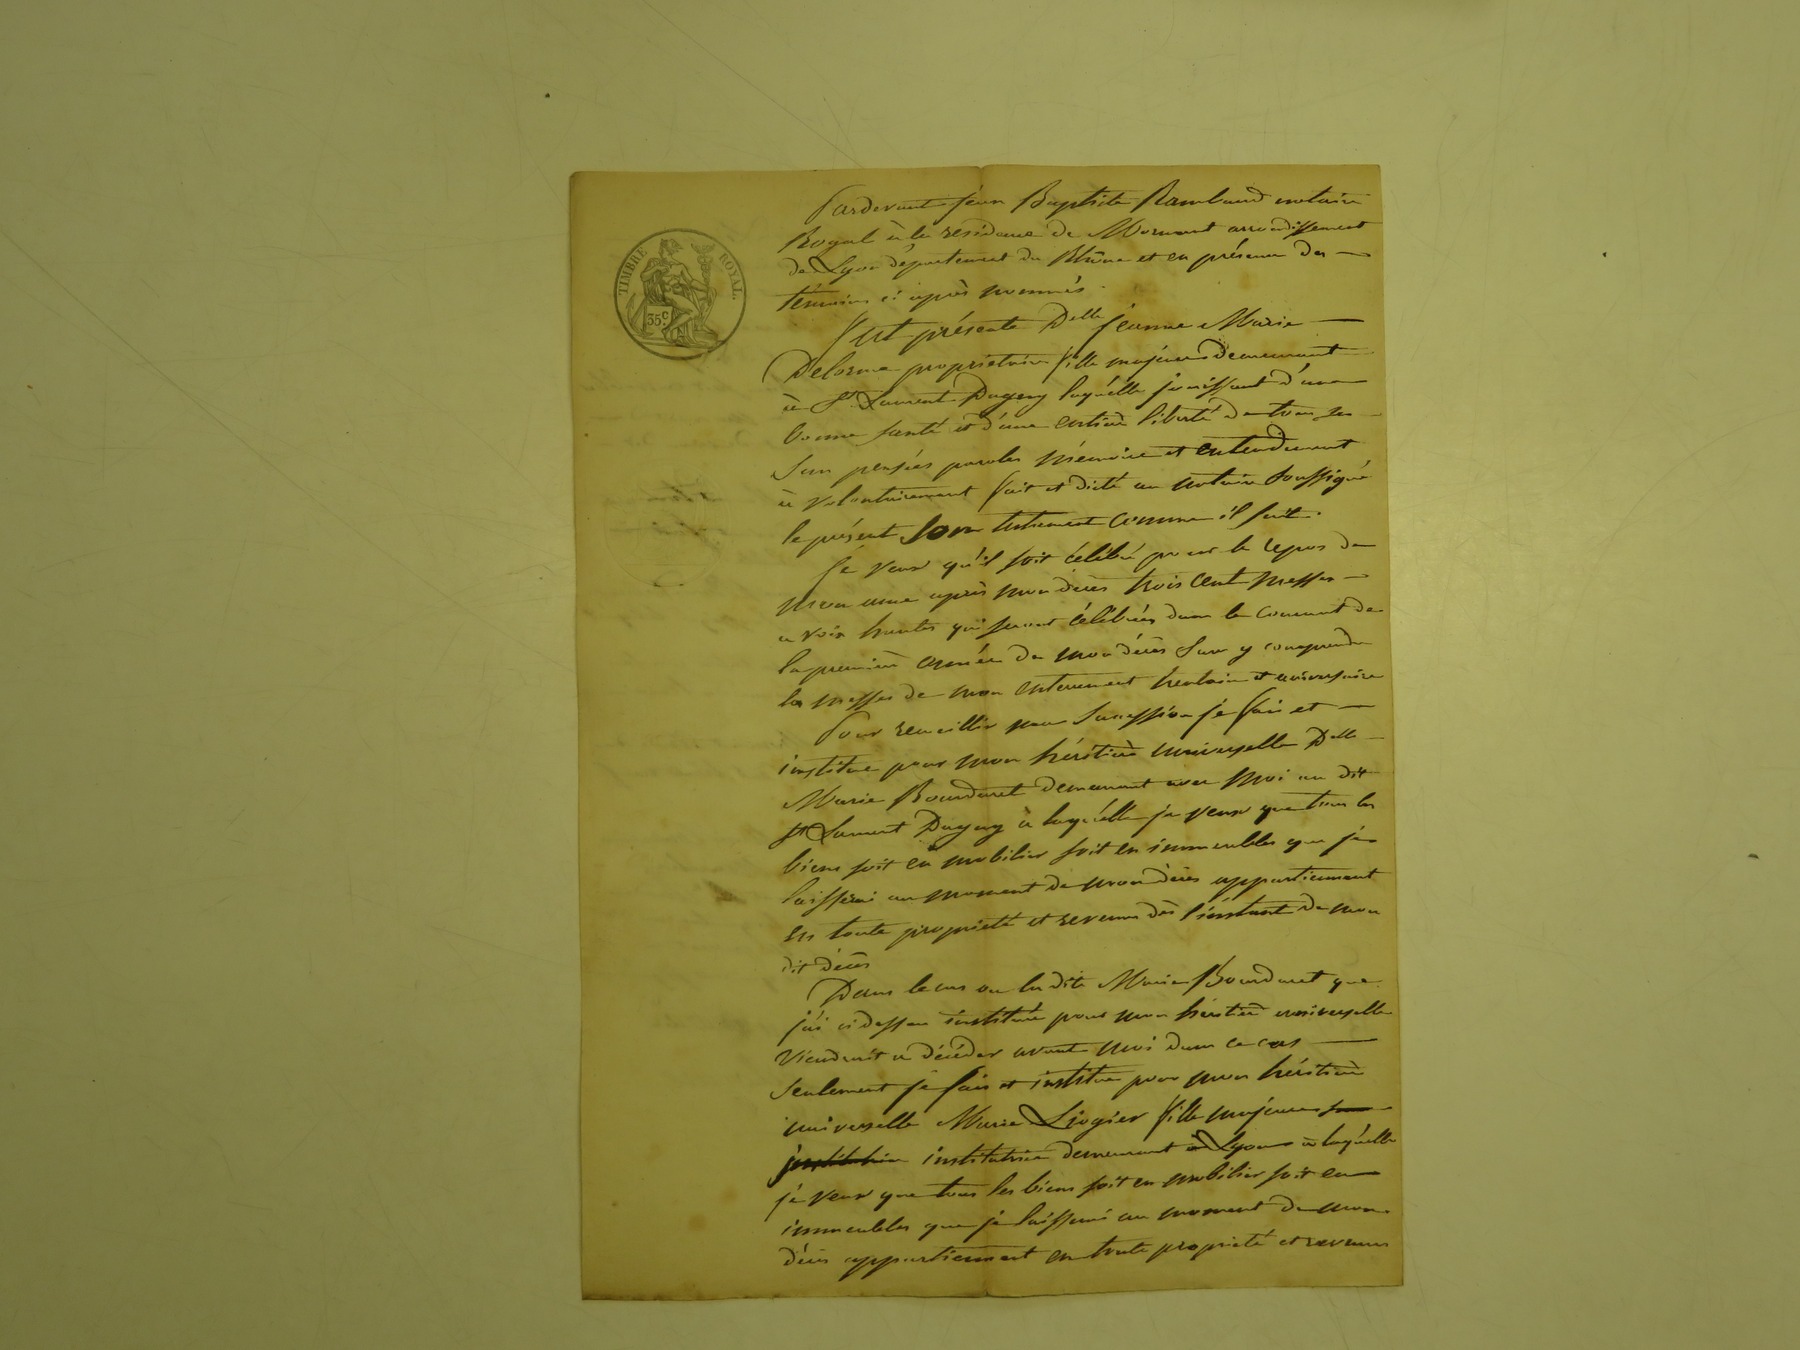 TIMBRE ROYAL.
35c.
Pardevant Jean Baptiste Rambaud notaire
Royal à la residance de Mornant arrondissement
de Lyon département du Rhône et en présence des
témoins ci après nommés.
Fut présente Delle Jeanne Marie
Delorme propriétaire fille majeure demeurant
à St Laurent Dagny laquélle jouissant d'une
bonne santé et d'une entière liberté de tous ses
sens pensées paroles mémoire et entendement
à volontairement fait et dicté au notaire soussigné
le présent son testament comme il suit.
Je veux qu'il soit célébré pour le repos de
mon ame après mon décès trois cent messes
a voix hautes qui seront célébrées dans le courant de
la première année de mon décès sans y comprendre
les messes de mon enterrement trentain et aniversaire
Pour recueillir ma succession je fais et
institue pour mon héritière universelle Delle
Marie Bourdaret demeurant avec moi au dit
St Laurent Dagny à laquélle je veux que tous les
biens soit en mobilier soit en immeubles que je
laisserai au moment de mon décès appartiennent
en toute propriété et revenus dès l'instant de mon
dit décès
Dans le cas ou la dite Marie Bourdaret que
j'ai ci dessus instituée pour mon héritière universelle
viendrait à décéder avant moi dans ce cas
seulement je fais et institue pour mon héritière
universelle Marie Liogier fille majeure
institutrice demeurant à Lyon à laquélle
je veux que tous les biens soit en mobilier soit en
immeubles que je laisserai au moment de mon
décès appartiennent en toute propriété et revenus